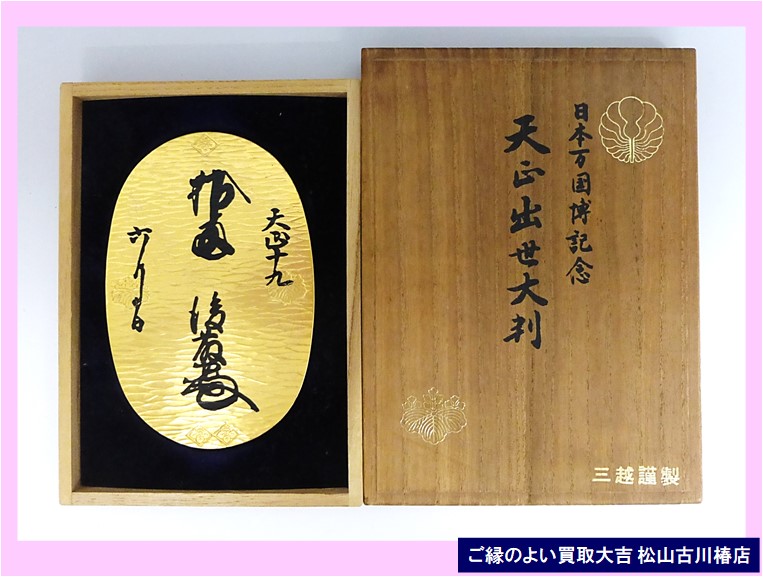 天正十九
拾両 後藤
六月日
日本万国博記念
天正出世大判
三越謹製
ご縁のよい買取大吉 松山古川椿店